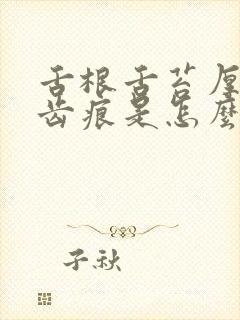 舌根舌苔厚
齿痕是怎麼
子秋